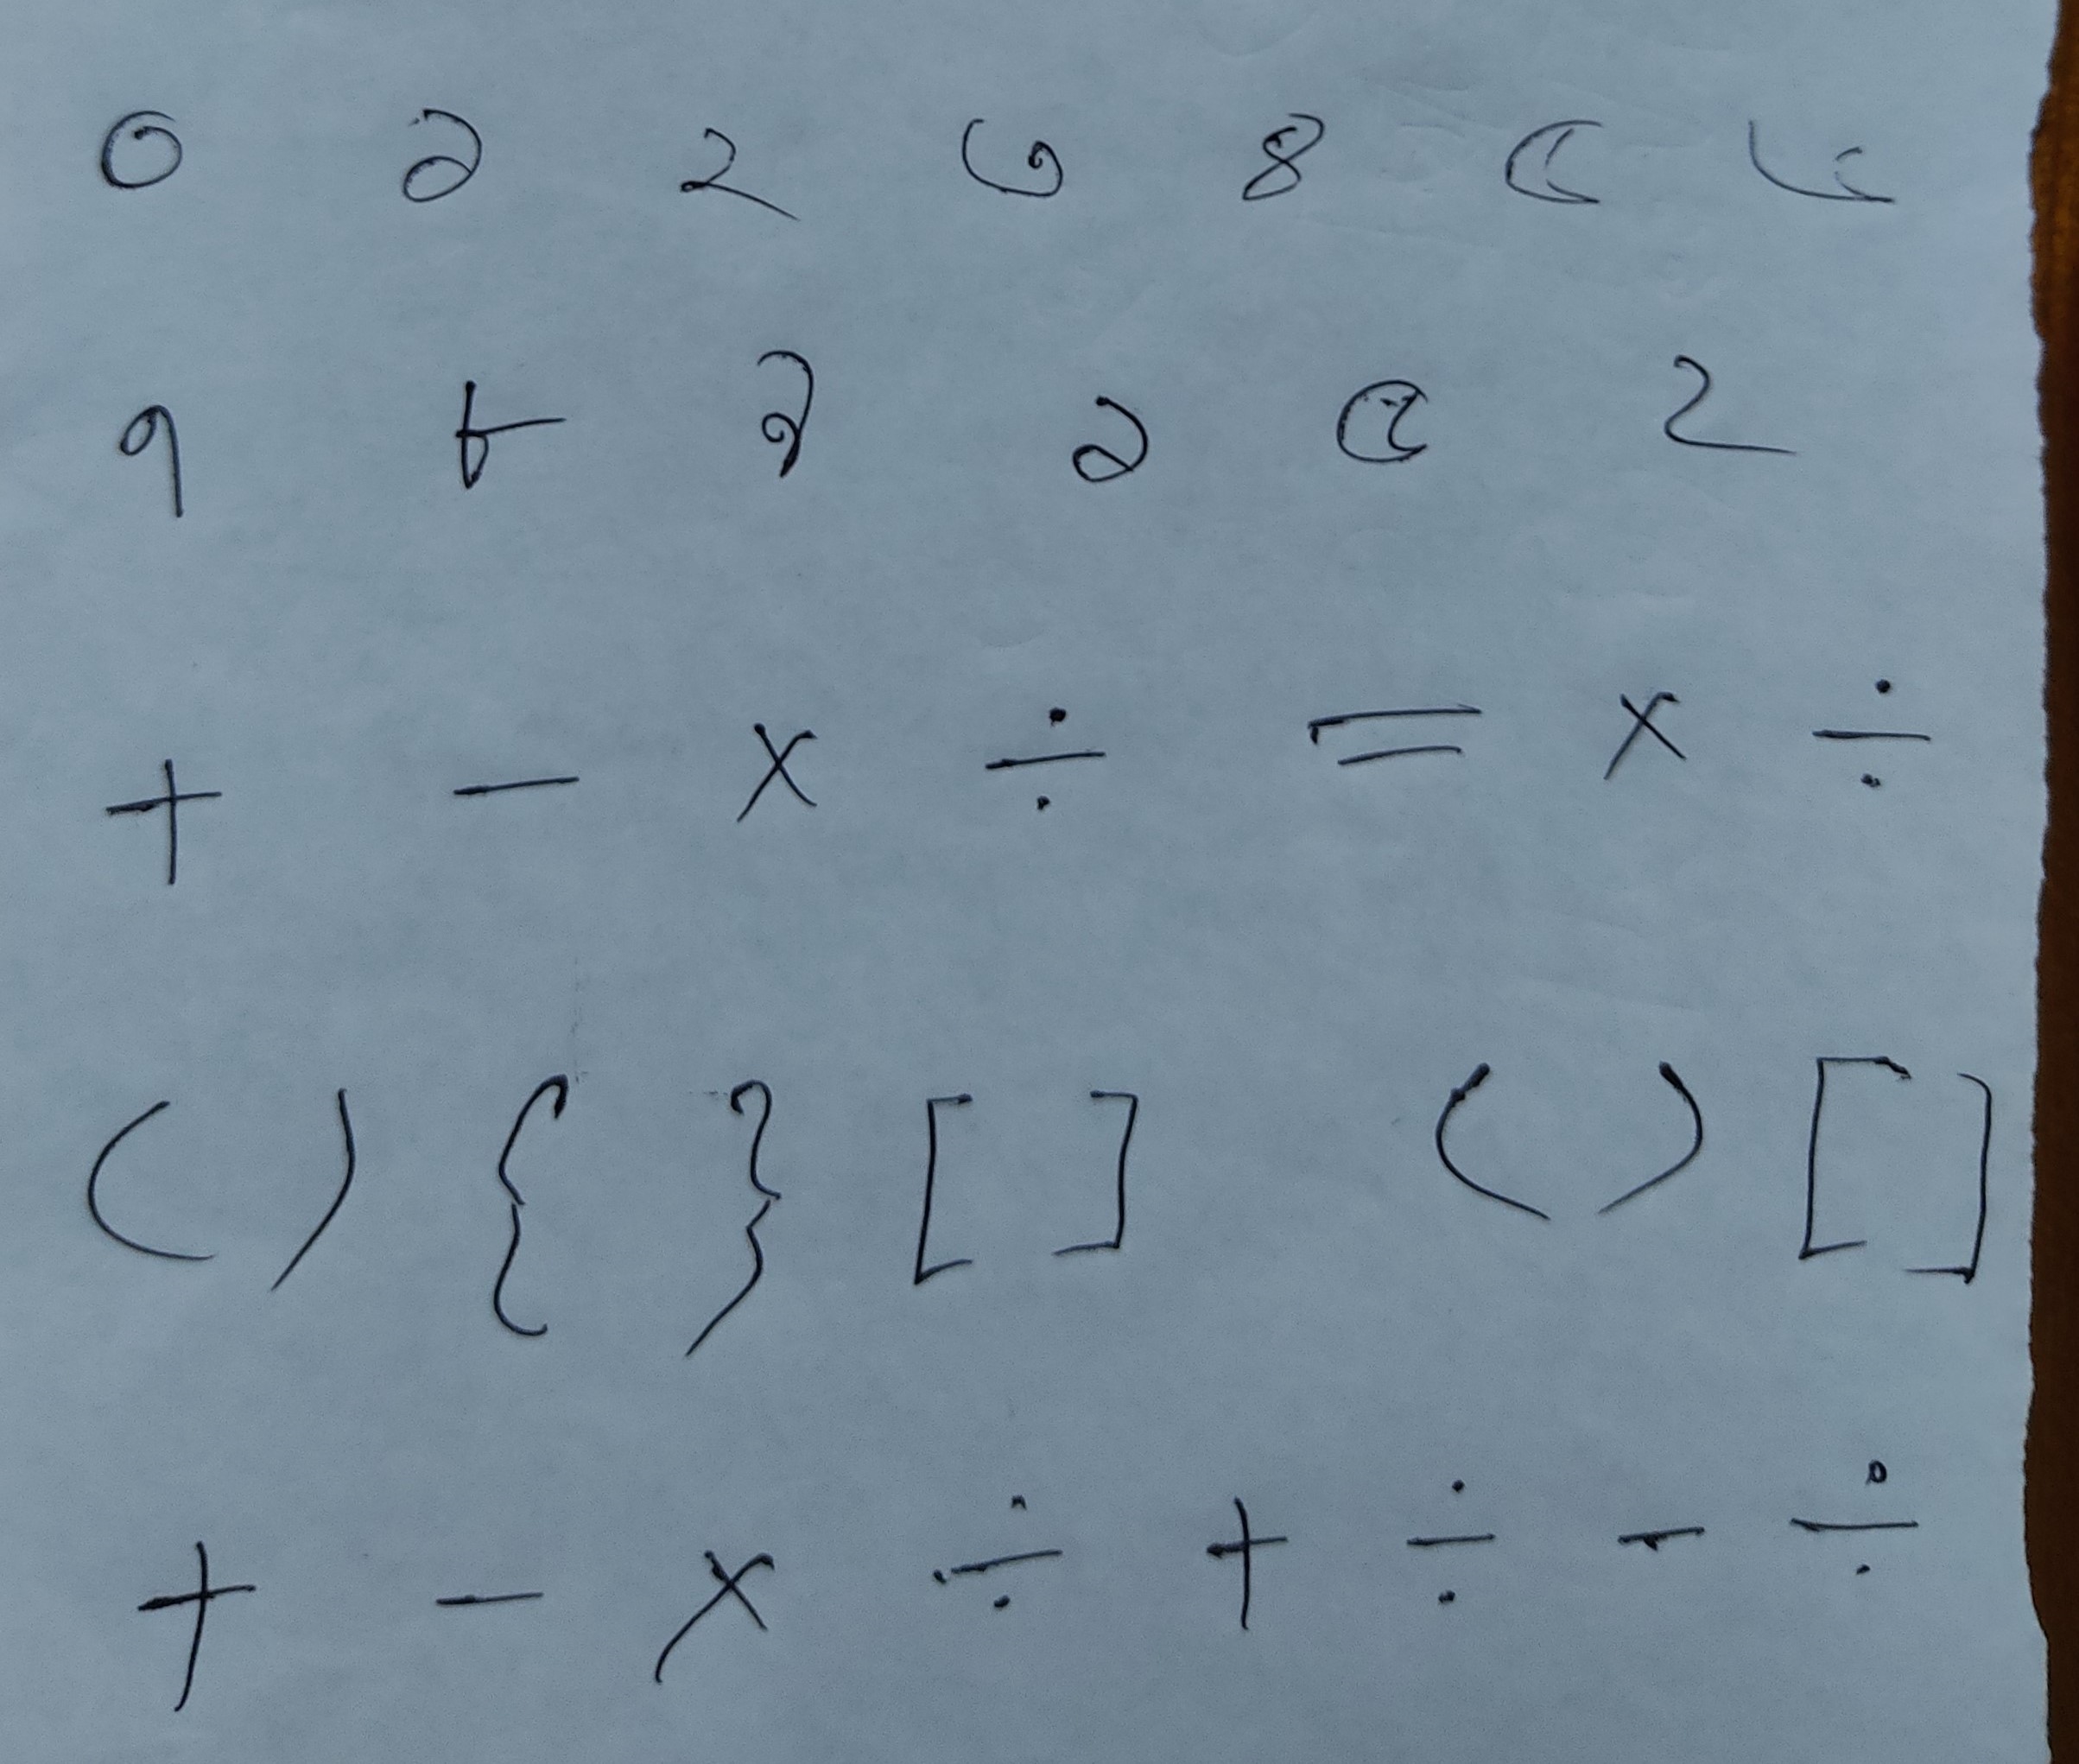 ০ ১ ২ ৩ ৪ ৫ ৬
৭ ৮ ৯ ১ ৫ ২
+ - × ÷ = × ÷
( ) { } [ ] ( ) [ ]
+ - × ÷ + ÷ - ÷